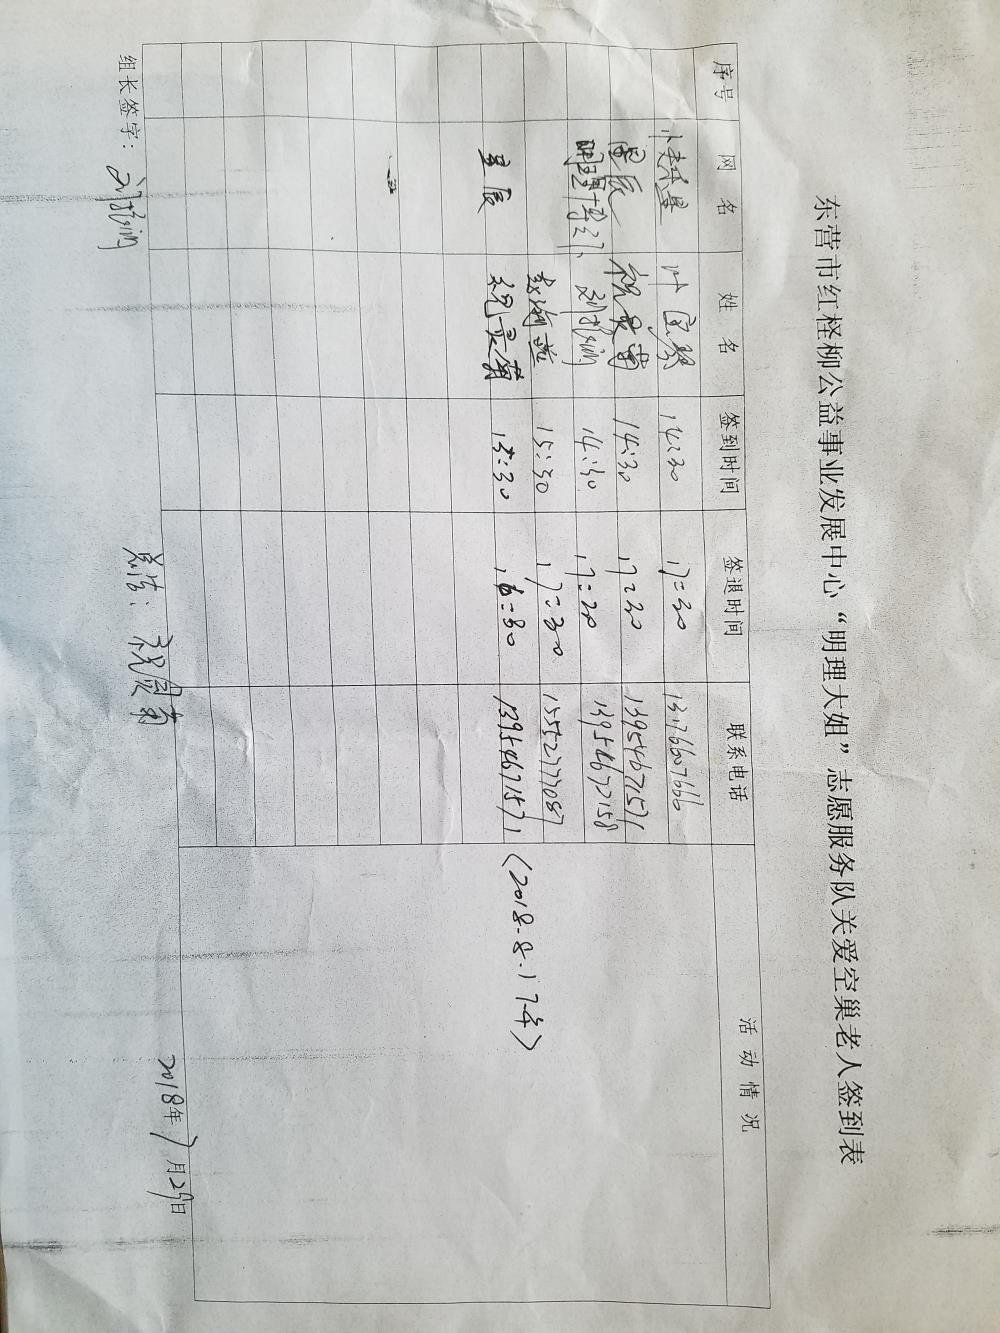 东营市红柽柳公益事业发展中心“明理大姐”志愿服务队关爱空巢老人签到表
序号 网名 姓名 签到时间 签退时间 联系电话 活动情况
叶 14:30 17:30 13176607666
星辰 祝景菊 14:30 17:30 13954671571
明理 14:30 17:20 13954672158
15:30 17:30 15552777087
星辰 祝景菊 15:30 16:30 13954671571 (2018-8-17补)
组长签字： 总结：祝景菊 2018年7月29日